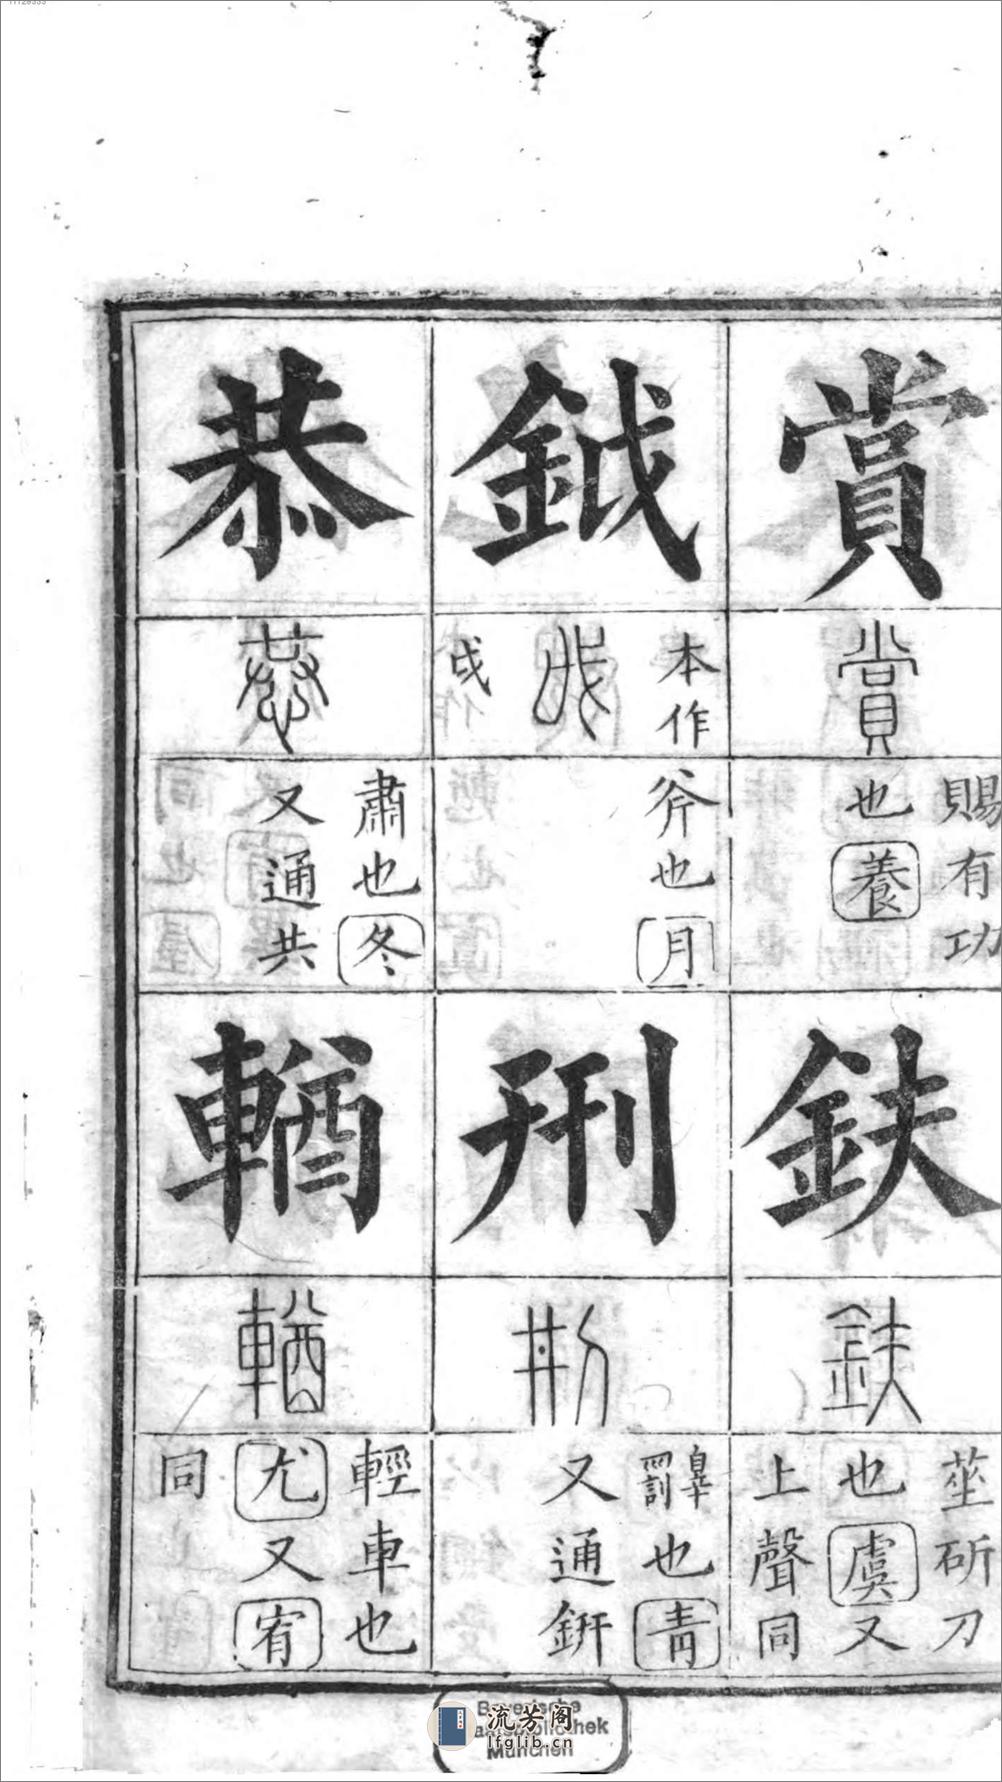 賞
賞
賜有功
也養
鈇
鈇
莝斫刀
也虞又
上聲同
鉞
本作
戉
戉
斧也月
刑
㓝
罰辠也青
又通鈃
恭
恭
肅也冬
又通共
輶
輶
輕車也
尤又宥
同
流芳阁
lfglib.cn
Bayerische
Staatsbibliothek
München